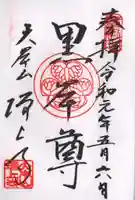 奉拝
令和元年五月六日
黒本尊
大本山
増上寺